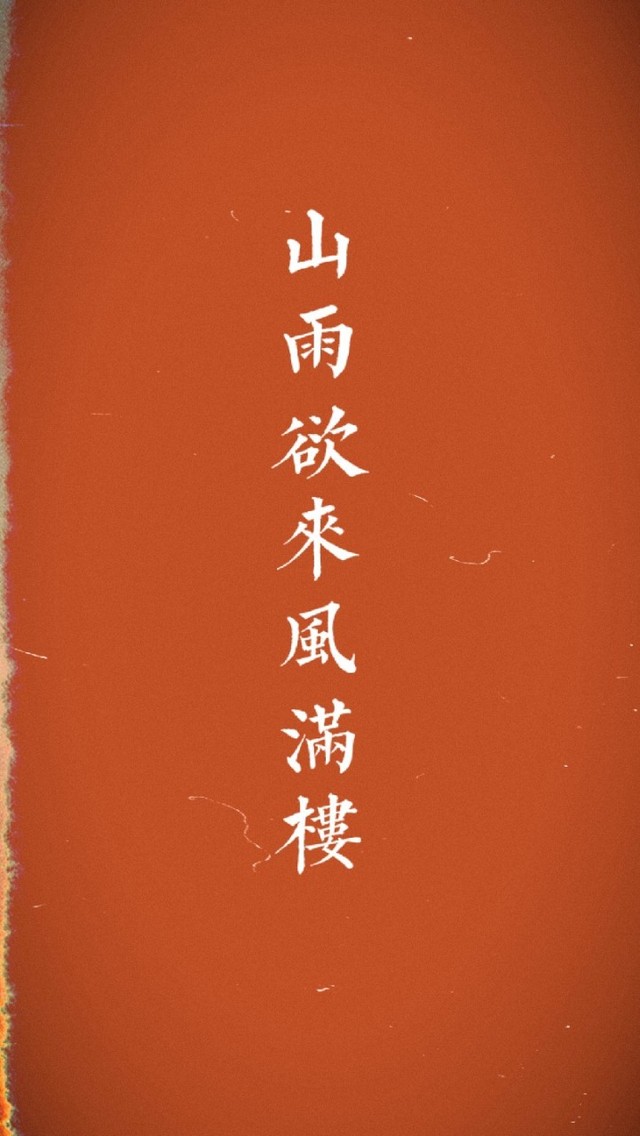 山雨欲來風滿樓